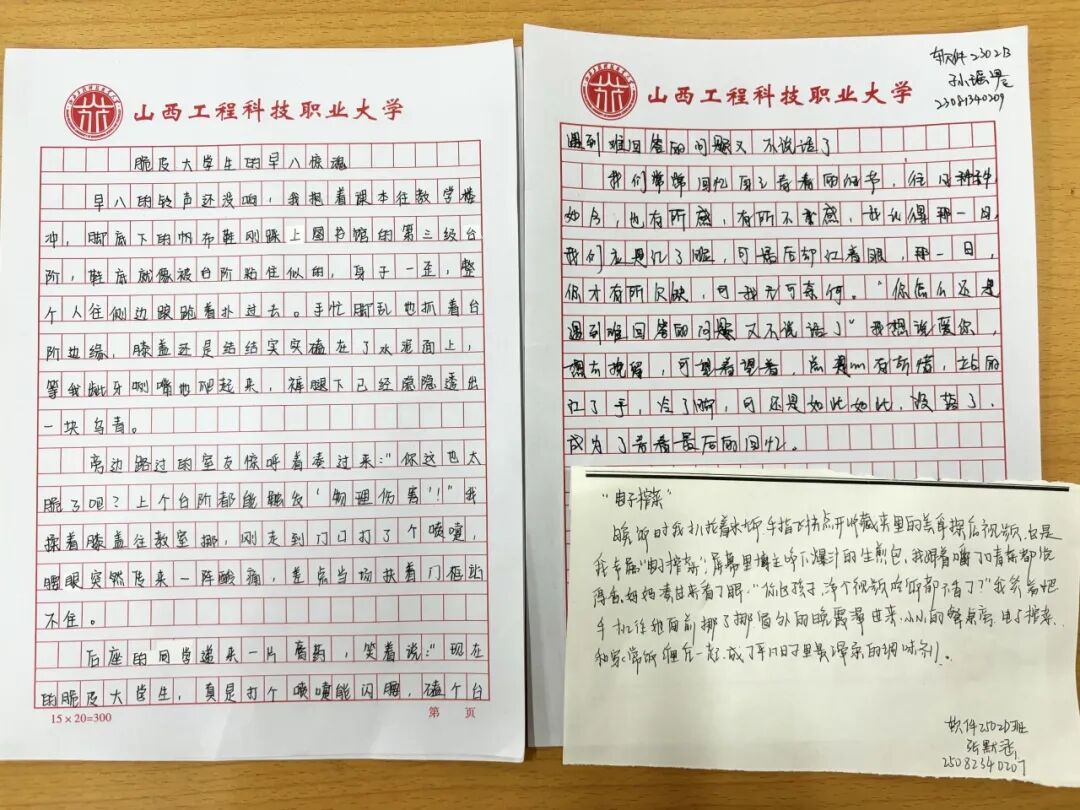 山西工程科技职业大学
脆皮大学生的早八惊魂
早八的铃声还没响，我抱着课本往教学楼
冲，脚底下的帆布鞋刚踩上图书馆的第三级台
阶，鞋底就像被台阶粘住似的，身子一歪，整
个人往侧边踉跄着扑过去。手忙脚乱地抓着台
阶边缘，膝盖还是结结实实磕在了水泥面上，
等我龇牙咧嘴地爬起来，裤腿下已经隐隐透出
一块乌青。
旁边路过的室友惊呼着凑过来：“你这也太
脆了吧？上个台阶都能触发‘物理伤害’！”我
揉着膝盖往教室挪，刚走到门口打了个喷嚏，
腰眼突然传来一阵酸痛，差点当场扶着门框站
不住。
后座的同学递来一片膏药，笑着说：“现在
的脆皮大学生，真是打个喷嚏能闪腰，磕个台
15×20=300
第 页
山西工程科技职业大学
软件2302B
23081340209
遇到难回答的问题又不说话了
我们常常回忆自己青春的细节，往日种种，
如今，也有所感，有所不敢感，我记得那一日，
我们应是红了脸，可话后却红着眼，那一日，
你才有所欠缺，可我无可奈何。“你怎么还是
遇到难回答的问题又不说话了”我想说爱你，
想去挽留，可望着望着，
红了手，冷了脚，可还是如此如此，没落了，
成为了青春最后的回忆。
“电子榨菜”
晚饭时我扒拉着米饭，手指飞快点开收藏夹里的美食探店视频，这是
我专属“电子榨菜”，屏幕里博主咬下爆汁的生煎包，我跟着嘴了口青菜都觉
得香。妈妈凑过来看了眼，“你这孩子，浄个视频啥饭都不香了？”我笑着把
手机往她面前挪了挪，窗外的晚霞漫进来，小小的餐桌旁，电子榨菜
和家常饭混在一起，成了平凡日子里最深宗的调味剂。
软件2502D班
25082340207